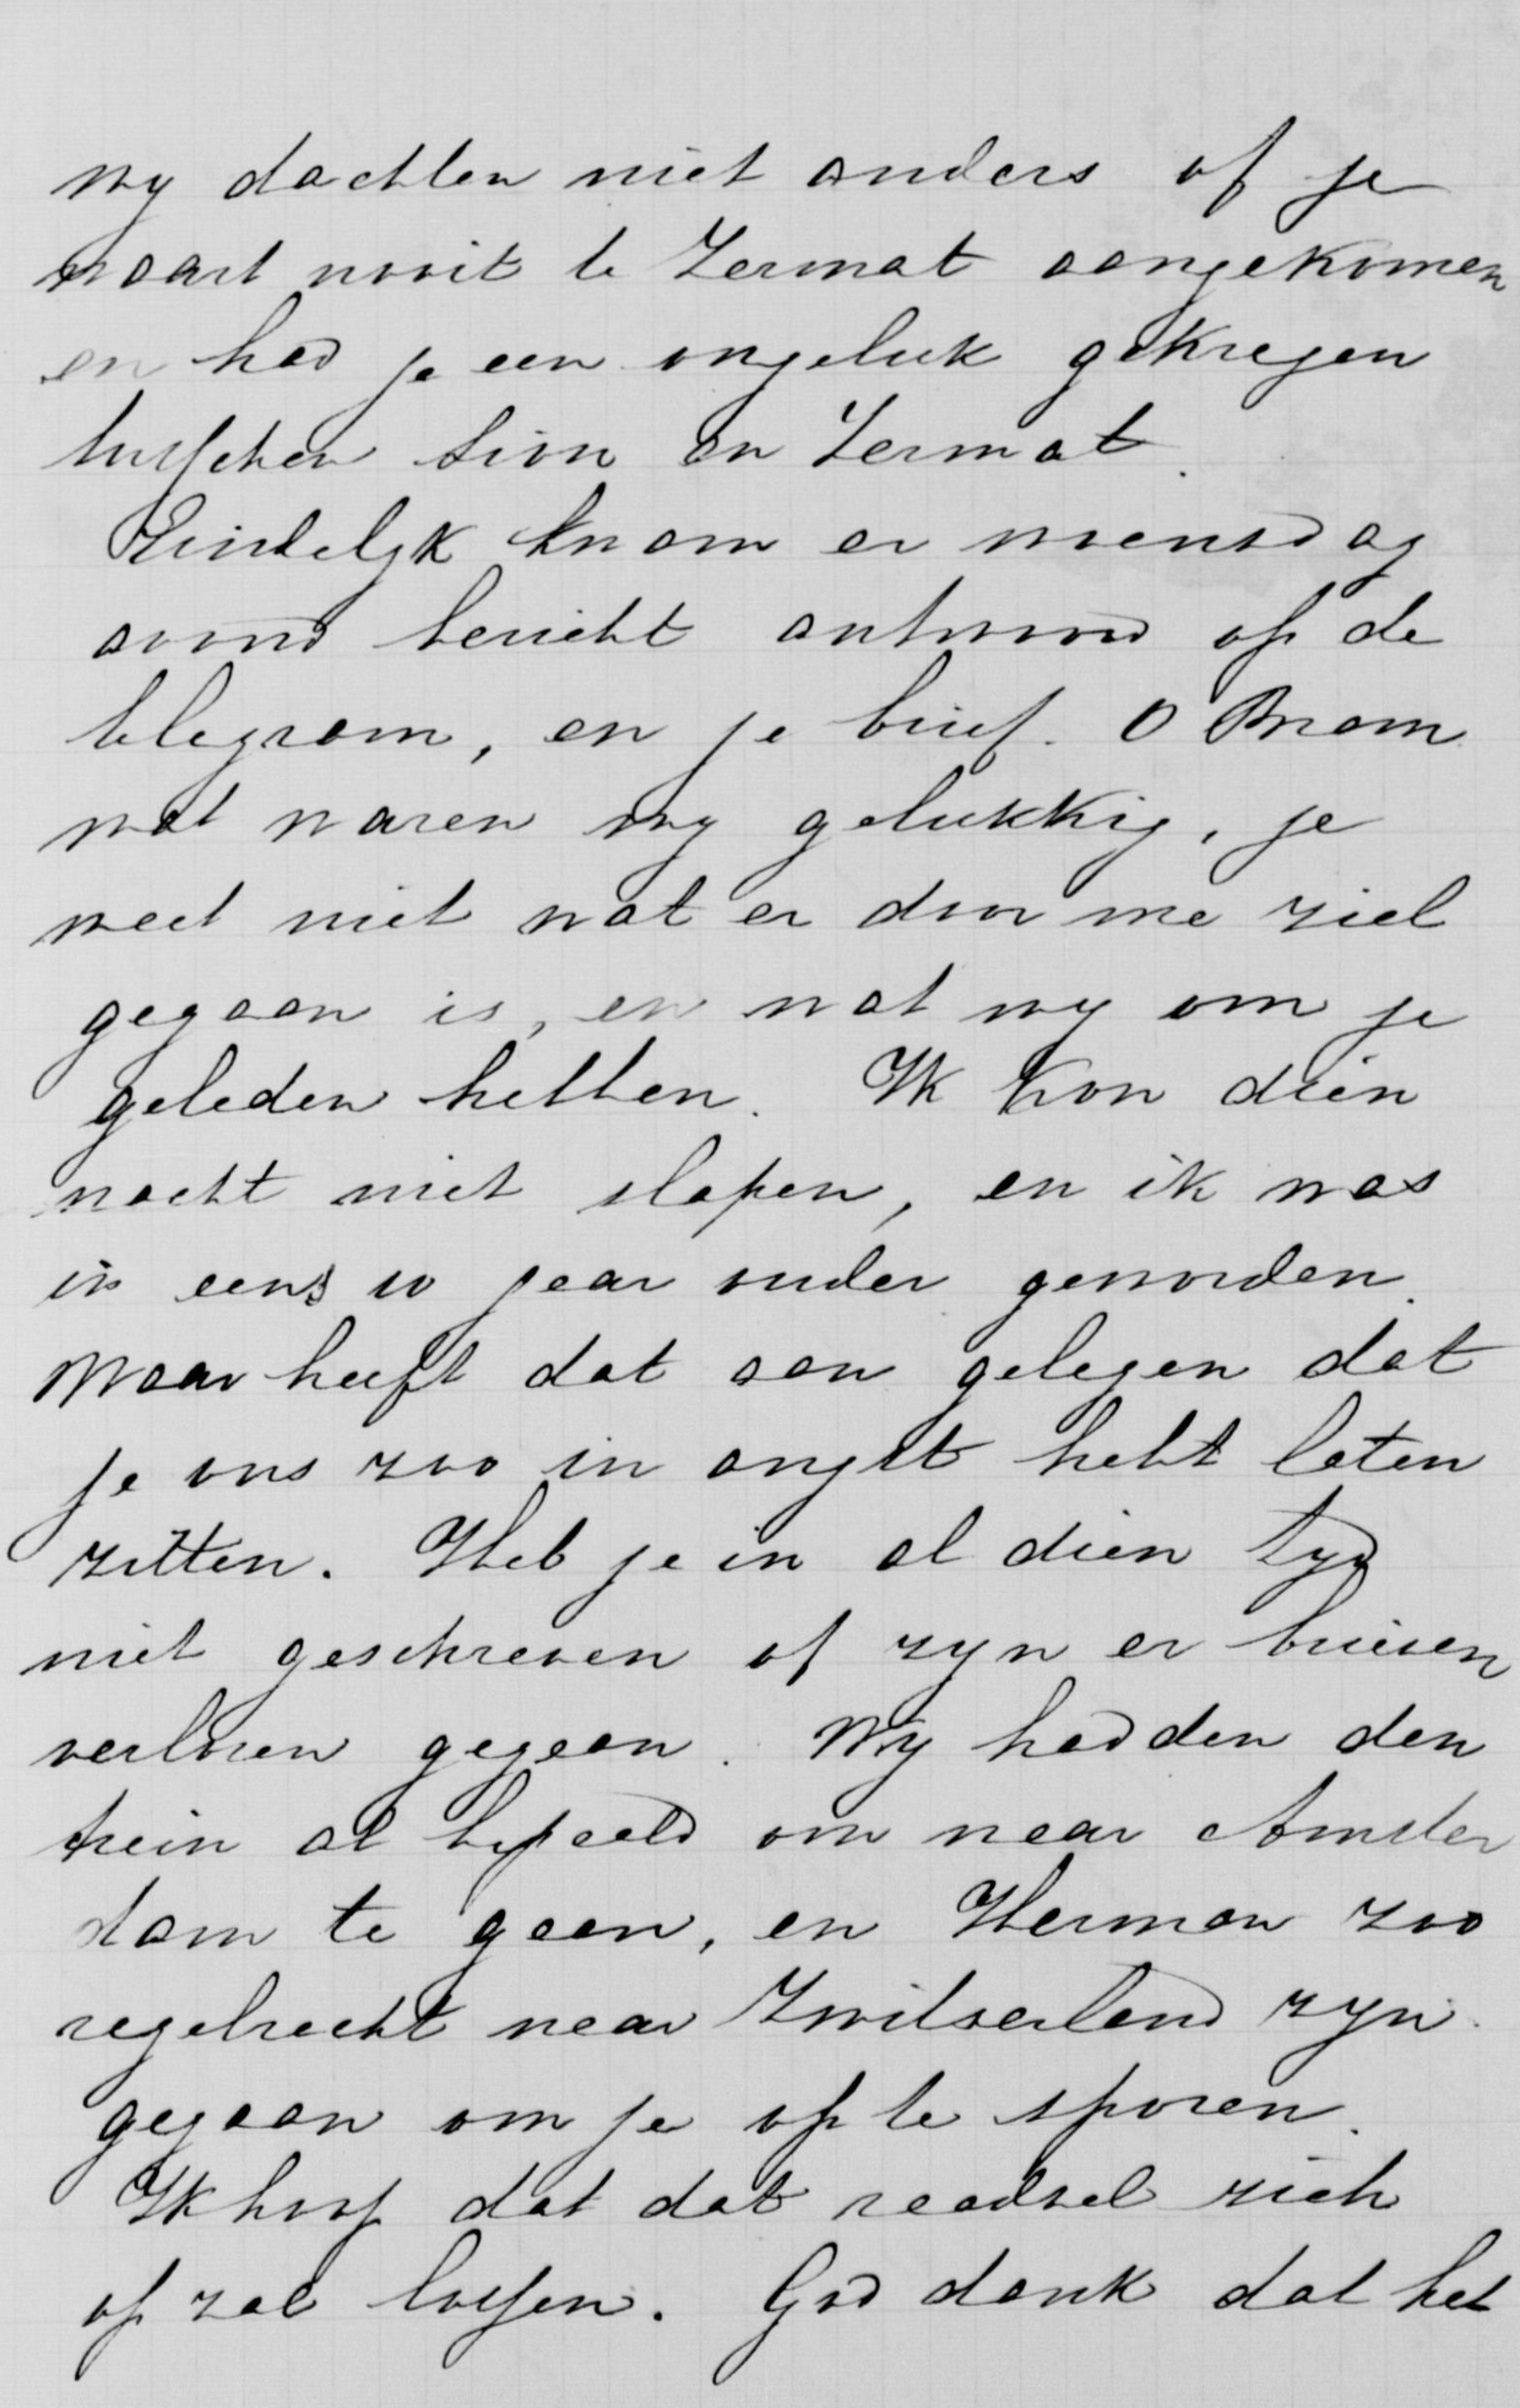 wy dachten niet anders of je
waart nooit te Zermat aangekomen
en had je een ongeluk gekregen
tusschen Sion en Zermat.
Eindelyk kwam er woensdag
avond bericht antwoord op de
telegram, en je brief. O Bram
wat waren wy gelukkig, je
weet niet wat er door me ziel
gegaan is, en wat wy om je
geleden hebben. Ik kon dien
nacht niet slapen, en ik was
in eens 10 jaar ouder geworden.
Maar heeft dat aan gelegen dat
je ons zoo in angst hebt laten
zitten. Heb je in al dien tyd
niet geschreven of zyn er brieven
verloren gegaan. Wy hadden den
trein al bepaald om naar Amster
dam te gaan, en Herman zoo
regelrecht naar Zwitserland zyn
gegaan om je op te sporen.
Ik hoop dat dat raadsel zich
op zal lossen. God dank dat het